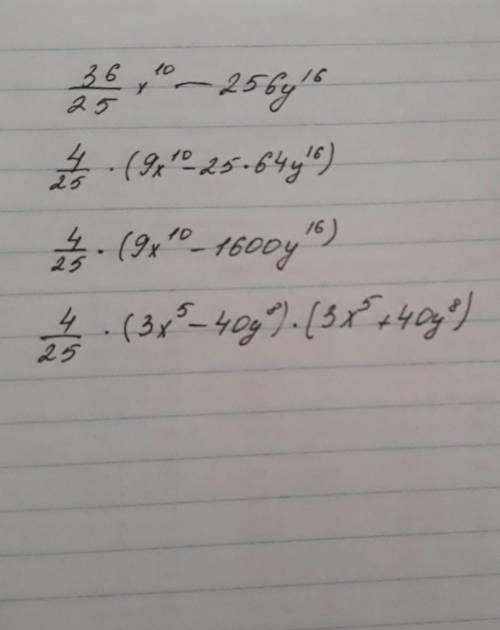 36/25 x¹⁰ — 256y¹⁶
4/25 · (9x¹⁰ - 25 · 64y¹⁶)
4/25 · (9x¹⁰ - 1600y¹⁶)
4/25 · (3x⁵ - 40y⁸) · (3x⁵ + 40y⁸)